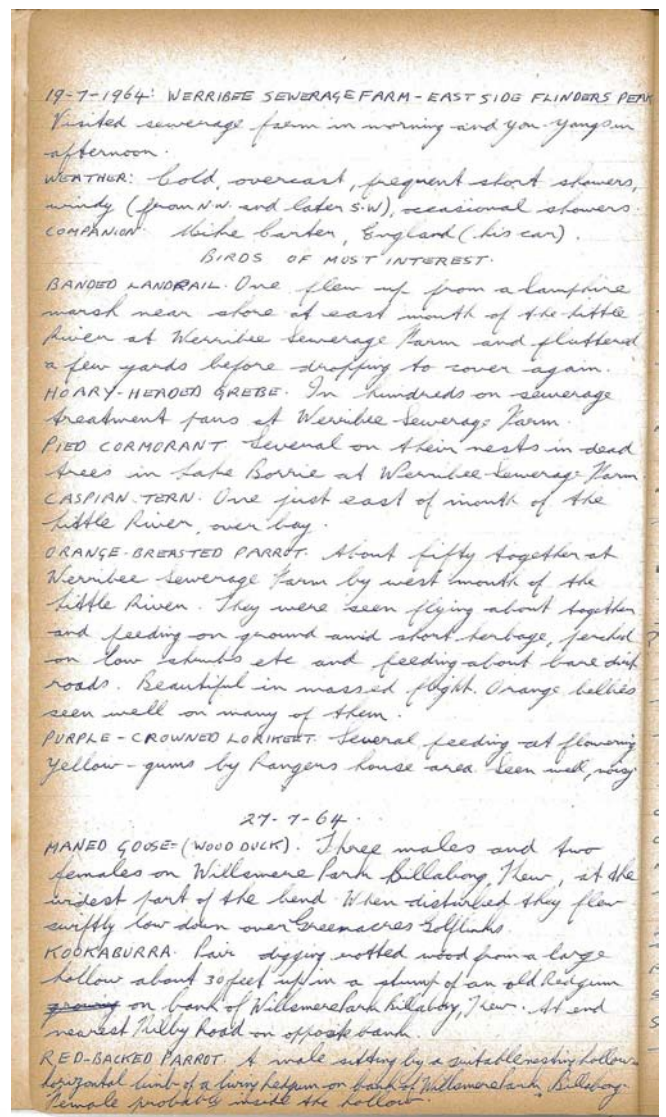 19-7-1964: WERRIBEE SEWERAGE FARM - EAST SIDE FLINDERS PEAK
Visited sewerage farm in morning and You-Yangs in
afternoon.
WEATHER: Cold, overcast, frequent short showers,
windy (from N.N. and later S.W), occasional showers.
COMPANION: Mike Carter, England (his car).
BIRDS OF MOST INTEREST.
BANDED LANDRAIL. One flew up from a samphire
marsh near shore at east mouth of the Little
River at Werribee Sewerage Farm and fluttered
a few yards before dropping to cover again.
HOARY-HEADED GREBE. In hundreds on sewerage
treatment pans at Werribee Sewerage Farm.
PIED CORMORANT. Several on their nests in dead
trees in Lake Borrie at Werribee Sewerage Farm
CASPIAN TERN. One just east of mouth of the
Little River, over bay.
ORANGE-BREASTED PARROT. About fifty together at
Werribee Sewerage Farm by west mouth of the
Little River. They were seen flying about together
and feeding on ground amid short herbage, perched
on low shrubs etc and feeding about bare dirt
roads. Beautiful in massed flight. Orange bellies
seen well on many of them.
PURPLE-CROWNED LORIKEET. Several feeding at flowering
Yellow-gums by Rangers house area. Seen well, noisy
27-7-64.
MANED GOOSE=(WOOD DUCK). Three males and two
females on Willsmere Park Billabong, Kew, at the
widest part of the bend. When disturbed they flew
swiftly low down over Greenacres Golflinks.
KOOKABURRA. Pair digging rotted wood from a large
hollow about 30 feet up in a stump of an old Redgum
growing on bank of Willsmere Park Billabong, Kew. At end
nearest Kilby Road on opposite bank.
RED-BACKED PARROT. A male sitting by a suitable nesting hollow
horizontal limb of a living Redgum on bank of Willsmere Park Billabong.
Female probably inside the hollow.